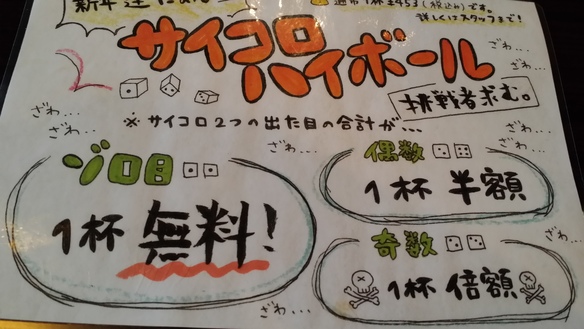 新年運だめし
通常1杯¥453(税込み)です。
詳しくはスタッフまで!
サイコロ
ハイボール
挑戦者求む。
ざわ...
ざわ...
ざわ...
ざわ...
※サイコロ2つの出た目の合計が...
ざわ...
ざわ...
ゾロ目
1杯 無料!
偶数
1杯 半額
ざわ...
奇数
1杯 倍額
ざわ...